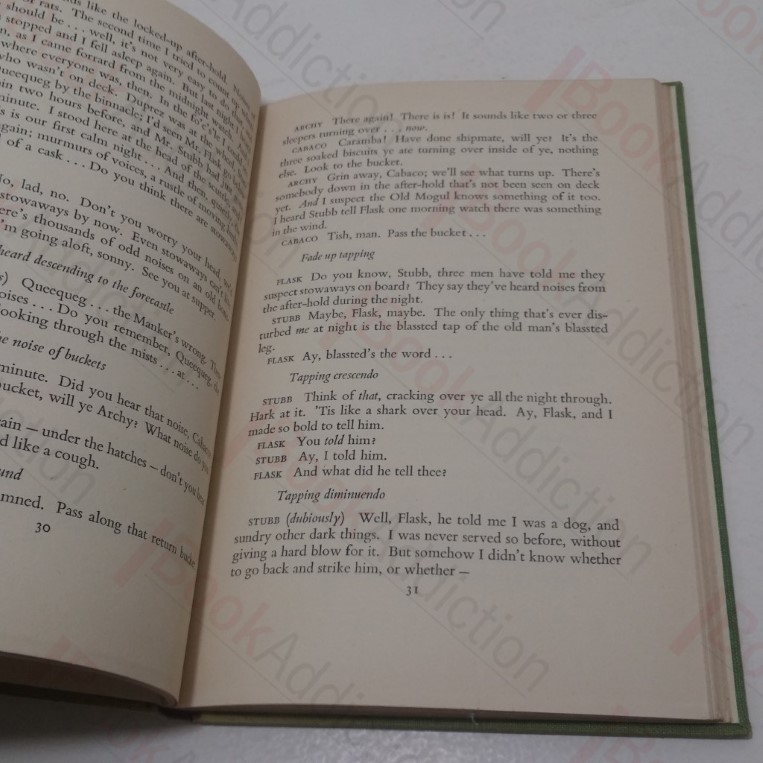 ds like the locked-up after-hold.
of rats. The second time I tried to
should be . . . well, it's not very easy to do that
stopped and I fell asleep again. But last night
n, as I came forward from the midnight
where everyone was, then. In the
who wasn't on deck. Duprez was at the
Queequeg by the binnacle; I'd seen Mr. Flask go
in two hours before, and Mr. Stubb had just
minute. I stood here at the head of the
s is our first calm night . . . And then, quietly, the
gain; murmurs of voices, a rustle of moving
of a cask . . . Do you think there are stowaways
No, lad, no. Don't you worry your head,
stowaways by now. Even stowaways can't
ere's thousands of odd noises on an old
I'm going aloft, sonny. See you at supper.
heard descending to the forecastle
s) Queequeg . . . the Manker's wrong.
oises . . . Do you remember, Queequeg, the
looking through the mists . . . at . . .
he noise of buckets
minute. Did you hear that noise, Cabaco
bucket, will ye Archy? What noise do you
ain — under the hatches — don't you hear
d like a cough.
ound
mned. Pass along that return bucket
30
ARCHY There again! There is is! It sounds like two or three
sleepers turning over . . . now.
CABACO Caramba! Have done shipmate, will ye? It's the
three soaked biscuits ye ate turning over inside of ye, nothing
else. Look to the bucket.
ARCHY Grin away, Cabaco; we'll see what turns up. There's
somebody down in the after-hold that's not been seen on deck
yet. And I suspect the Old Mogul knows something of it too.
I heard Stubb tell Flask one morning watch there was something
in the wind.
CABACO Tish, man. Pass the bucket . . .
Fade up tapping
FLASK Do you know, Stubb, three men have told me they
suspect stowaways on board? They say they've heard noises from
the after-hold during the night.
STUBB Maybe, Flask, maybe. The only thing that's ever dis-
turbed me at night is the blassted tap of the old man's blassted
leg.
FLASK Ay, blassted's the word . . .
Tapping crescendo
STUBB Think of that, cracking over ye all the night through.
Hark at it. 'Tis like a shark over your head. Ay, Flask, and I
made so bold to tell him.
FLASK You told him?
STUBB Ay, I told him.
FLASK And what did he tell thee?
Tapping diminuendo
STUBB (dubiously) Well, Flask, he told me I was a dog, and
sundry other dark things. I was never served so before, without
giving a hard blow for it. But somehow I didn't know whether
to go back and strike him, or whether —
31
BookAddiction